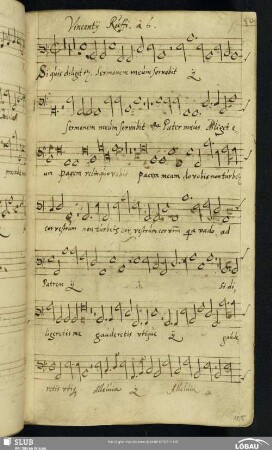 Vincenty Ruffi. à 6.
Si quis diligit me, sermonem meum servabit ij
sermonem meum servabit Pater meus diliget e
um pacem relinquo vobis pacem meam do vobis non turbetur
cor vestrum non turbetur cor vestrum cor vrm q̃a vado ad
Patrem ij Si di
ligeretis me gauderetis utique ij gaude
retis utiq; Alleluia ij Alleluia
SLUB
Wir führen Wissen.
LÖBAU